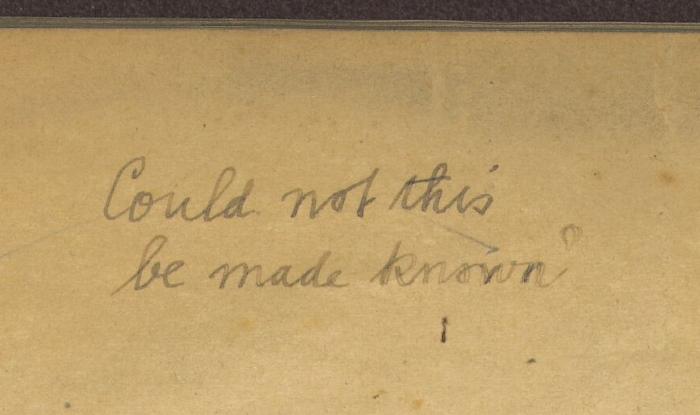 Could not this
be made known?